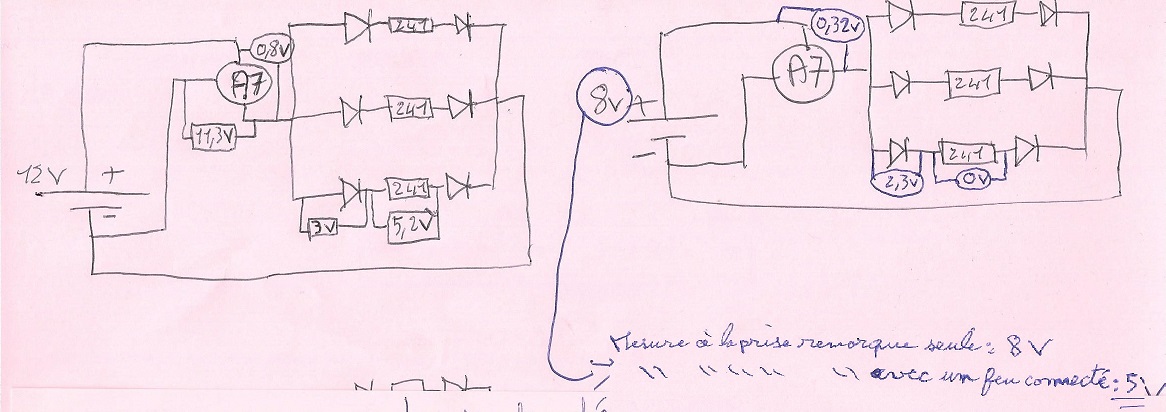 241
0,8V
A7
241
11,3V
12V
+
-
241
3V
5,2V
0,32V
241
A7
8V
+
-
241
241
2,3V
0V
Mesure à la prise remorque seule : 8V
" " " " " avec un feu connecté : 5V